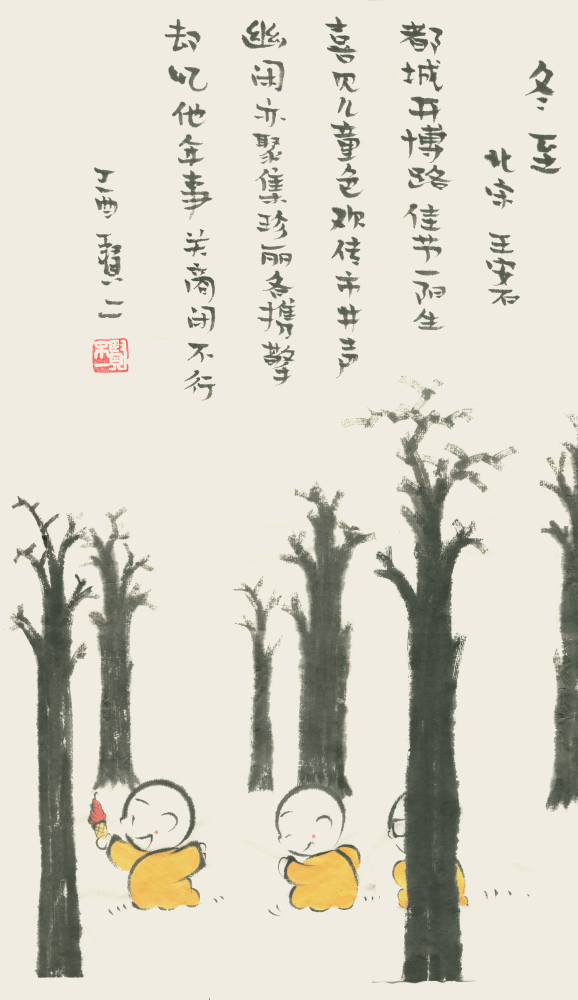 冬至
北宋 王安石
都城开博路 佳节一阳生
喜见儿童色欢传市井声
幽闲亦聚集珍丽各携擎
却忆他年事 关商闭不行
丁酉 賢二